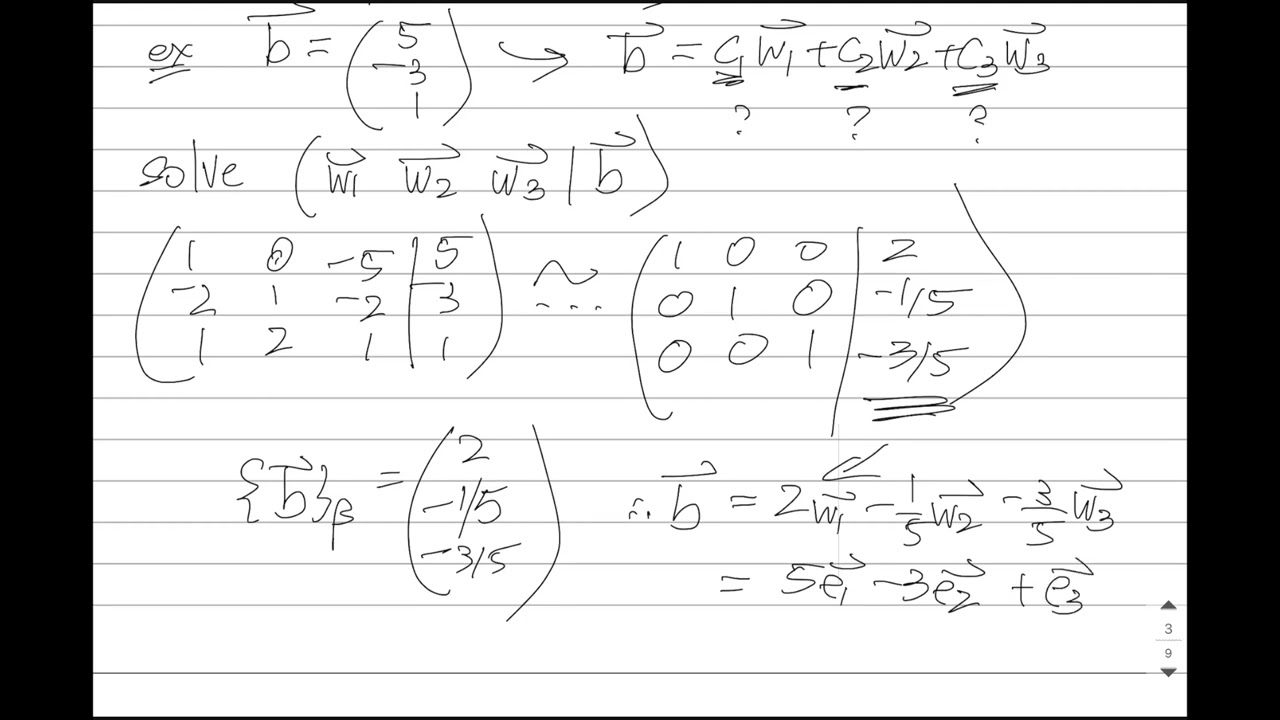 ex b⃗ = (5 -3 1) → b⃗ = c₁w⃗₁ + c₂w⃗₂ + c₃w⃗₃
? ? ?
solve (w⃗₁ w⃗₂ w⃗₃ | b⃗)
(1 0 -5 | 5) ~ (1 0 0 | 2)
(-2 1 -2 | -3) ... (0 1 0 | -1/5)
(1 2 1 | 1) (0 0 1 | -3/5)
{b⃗}β = (2 -1/5 -3/5) ∴ b⃗ = 2w⃗₁ - 1/5 w⃗₂ - 3/5 w⃗₃
= 5e⃗₁ - 3e⃗₂ + e⃗₃
3
9